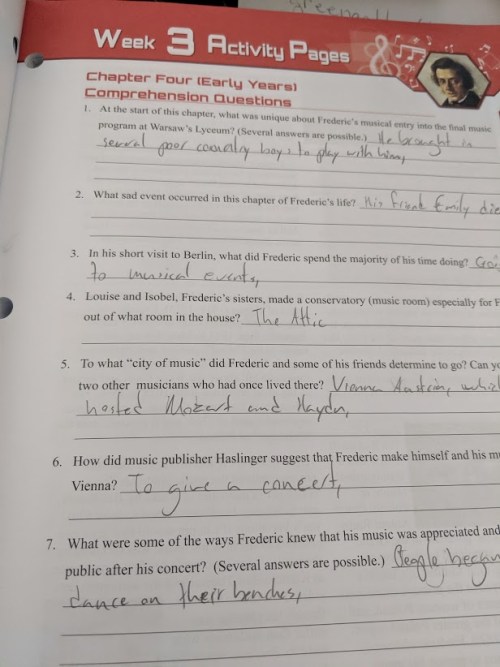 Week 3 Activity Pages
Chapter Four (Early Years)
Comprehension Questions
1. At the start of this chapter, what was unique about Frederic's musical entry into the final music
program at Warsaw's Lyceum? (Several answers are possible.) He brought in
several poor country boys to play with him,
2. What sad event occurred in this chapter of Frederic's life? His friend Emily die
3. In his short visit to Berlin, what did Frederic spend the majority of his time doing? Goi
to musical events,
4. Louise and Isobel, Frederic's sisters, made a conservatory (music room) especially for F
out of what room in the house? The Attic
5. To what "city of music" did Frederic and some of his friends determine to go? Can yo
two other musicians who had once lived there? Vienna Austria, which
hosted Mozart and Haydn,
6. How did music publisher Haslinger suggest that Frederic make himself and his mu
Vienna? To give a concert,
7. What were some of the ways Frederic knew that his music was appreciated and
public after his concert? (Several answers are possible.) People began
dance on their benches,